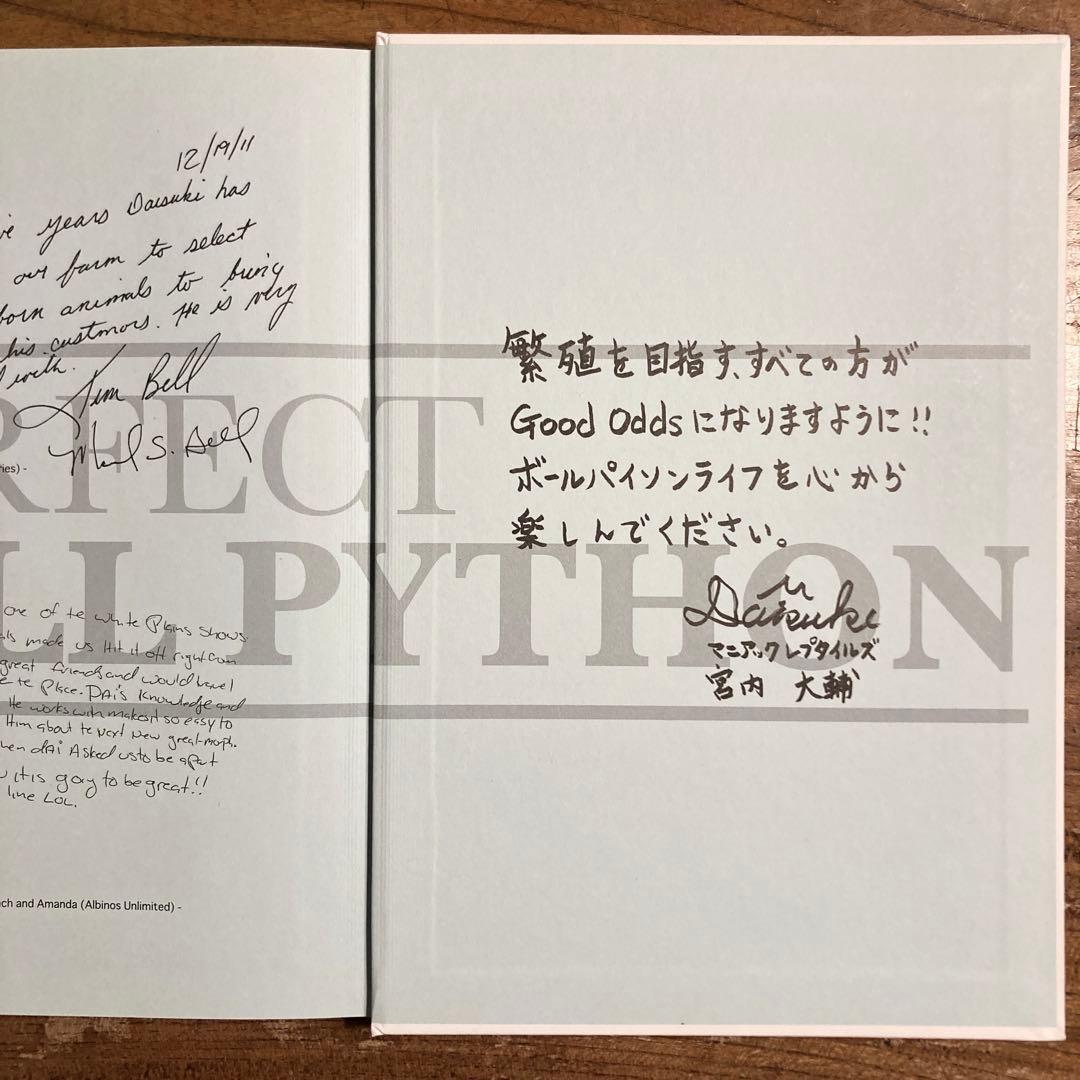 12/19/11
years Daisuki has
our farm to select
born animals to bring
his custmors. He is very
with.
Tim Bell
Mark S. Bell
ries) -
RFECT
LL PYTHON
one of te white Plains shows
made us Hit it off right from
great friends and would have
te Place. DAi's knowledge and
He works with makes it so easy to
Him about te Next New great morph.
dAi Asked us to be apart
it is goay to be great!!
line LOL.
ch and Amanda (Albinos Unlimited) -
繁殖を目指す、すべての方が
Good Oddsになりますように!!
ボールパイソンライフを心から
楽しんでください。
Daisuke
マニアックレプタイルズ
宮内 大輔